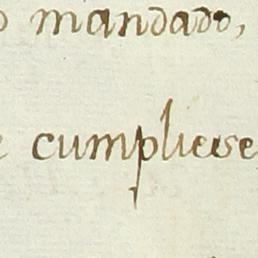 mandado,
cumpliese